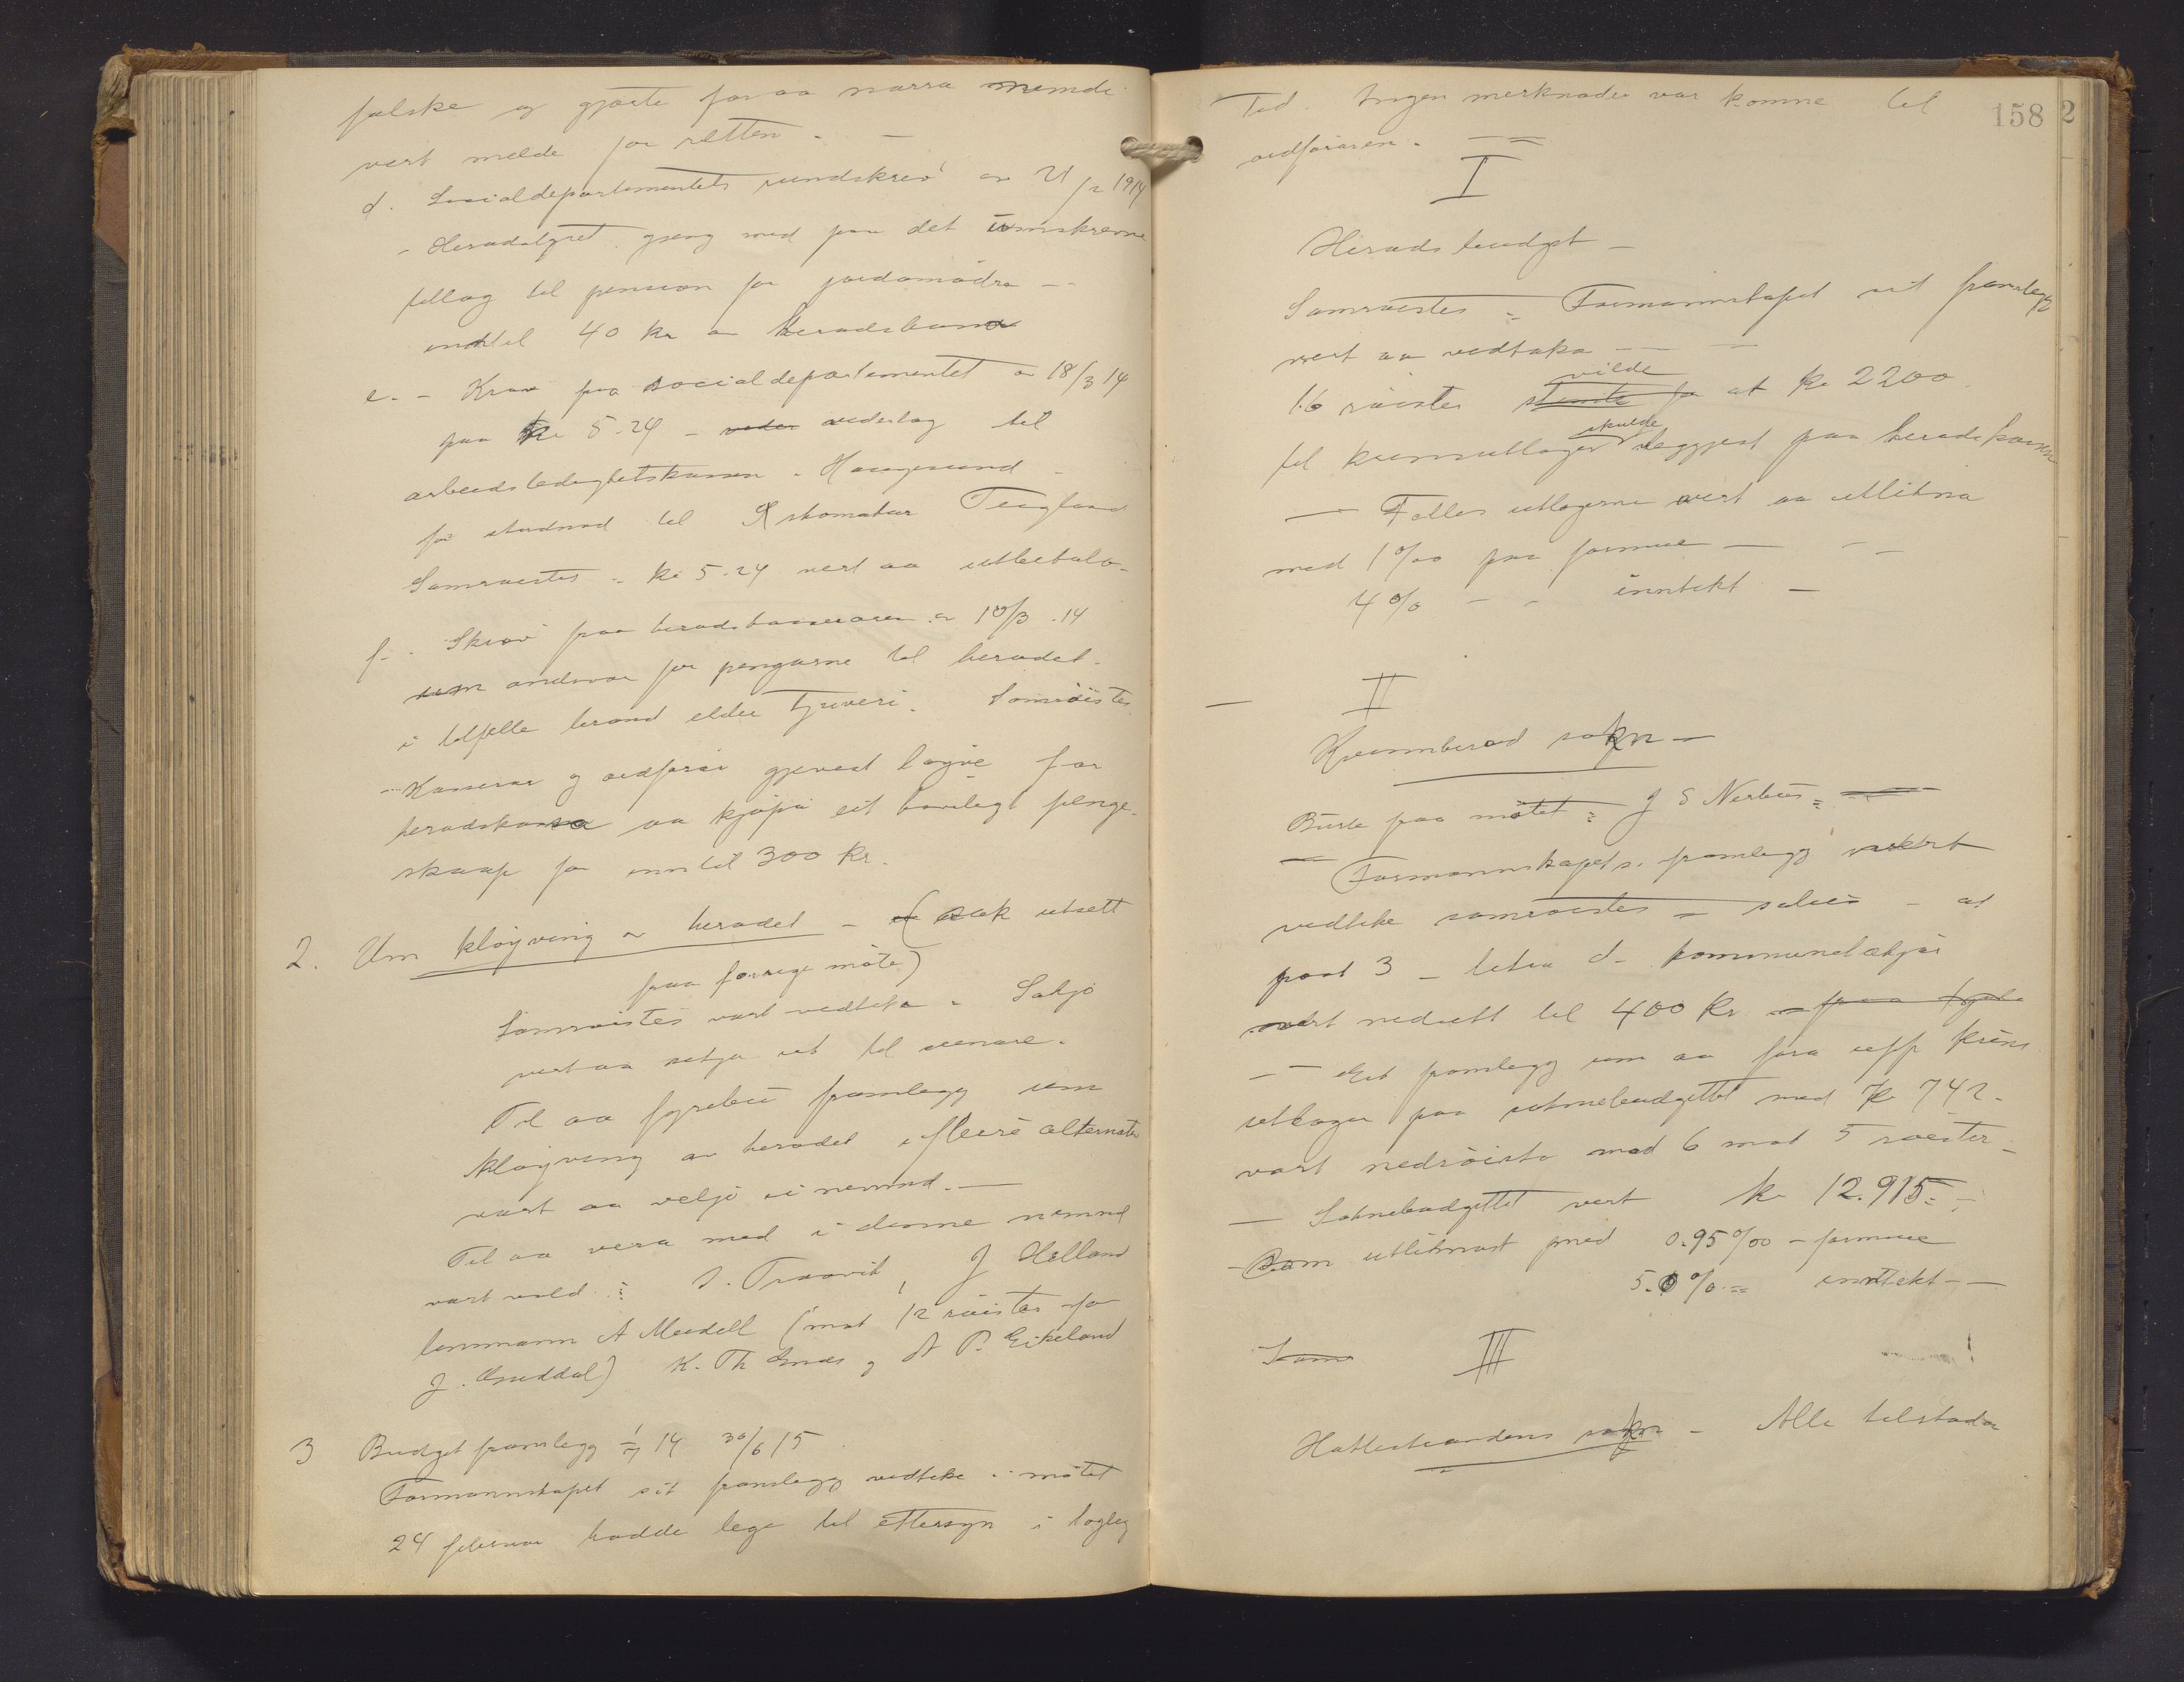 falske og gjorte for aa narra nemndi
vert melde for retten. —
d. Socialdepartementets rundskriv av 21/2 1914
- Heradstyret gjeng med paa det umskrevne
tillog til pension for jordmødre --
inntil 40 kr av heradskassa
e. - Krav fra socialdepartementet av 18/3 14
paa kr 5.24 - vederlag til
arbeidsledighetskassen. Haugesund -
for studnad til Teigland
Samrøistes - kr 5.24 vert aa utbetala-
f. - Skriv fraa heradskasseraren av 10/3.14
um andsvar for pengarne til heradet.
i tilfelle brand elder tjuveri. Samrøistes
- Kasserar og ordførar gjevest løyve for
heradskassa aa kjøpa eit høvelegt penge-
skaap for inntil 300 kr.
2. Um kløyving av heradet - (sak utsett
fraa forrige møte)
Samrøistes vart vedteke - Sakjo
vert aa setja ut til seinare.
Til aa fyrebu framlegg um
kløyving av heradet i fleire alternativ
vart aa velja ei nemnd. —
Til aa vera med i denne nemnd
vart vald: S. Traavik, J Helland
lensmann A Meidell (mot 12 røister for
J. Guddal) K. Th Enes og A P. Eikeland
3 Budgetframlegg 1/7 14 30/6 15
Formannskapet sit framlegg vedteke i møtet
24 februar hadde lege til ettersyn i logleg
158 2
Tid. Ingen merknader var komne til
ordføraren. —
I
Herads budget -
Samrøistes - Formannskapet sit framlegg
vert aa vedtaka — —
16 røister stemte for vilde at kr 2200
til krunutlogor skulde leggjast paa heradskassa
— Felles utlogerne vert aa utlikna
med 1 ‰ paa formue — - -
4 % - - inntekt -
— II
Kvinnherad sokn —
Burte fraa møtet: J S Nerhus =
— Formannskapets framlegg vart
vedteke samrøistes - so at
post 3 - litra d - kommunelækjar
vert nedsett til 400 kr - fraa
-- Eit framlegg um aa føra upp krins
utlogor paa soknebudgettet med kr 742.
vart nedrøista med 6 mot 5 røister -
— Soknebudgettet vert kr 12.915.-
- Som utliknast med 0.95 ‰ - formue
5.0 % = inntekt - —
Som III
Hattestrandens sokn - Alle tilstades